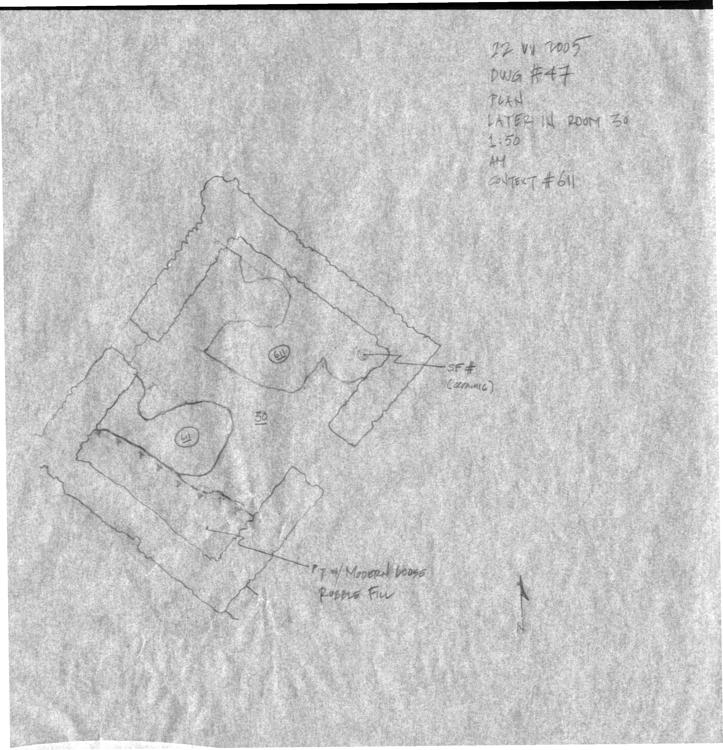 22 VI 2005
DWG #47
PLAN
LATER IN ROOM 30
1:50
AM
CONTEXT #611
611
SF #
(CERAMIC)
30
611
PIT W/ MODERN LOOSE
RUBBLE FILL